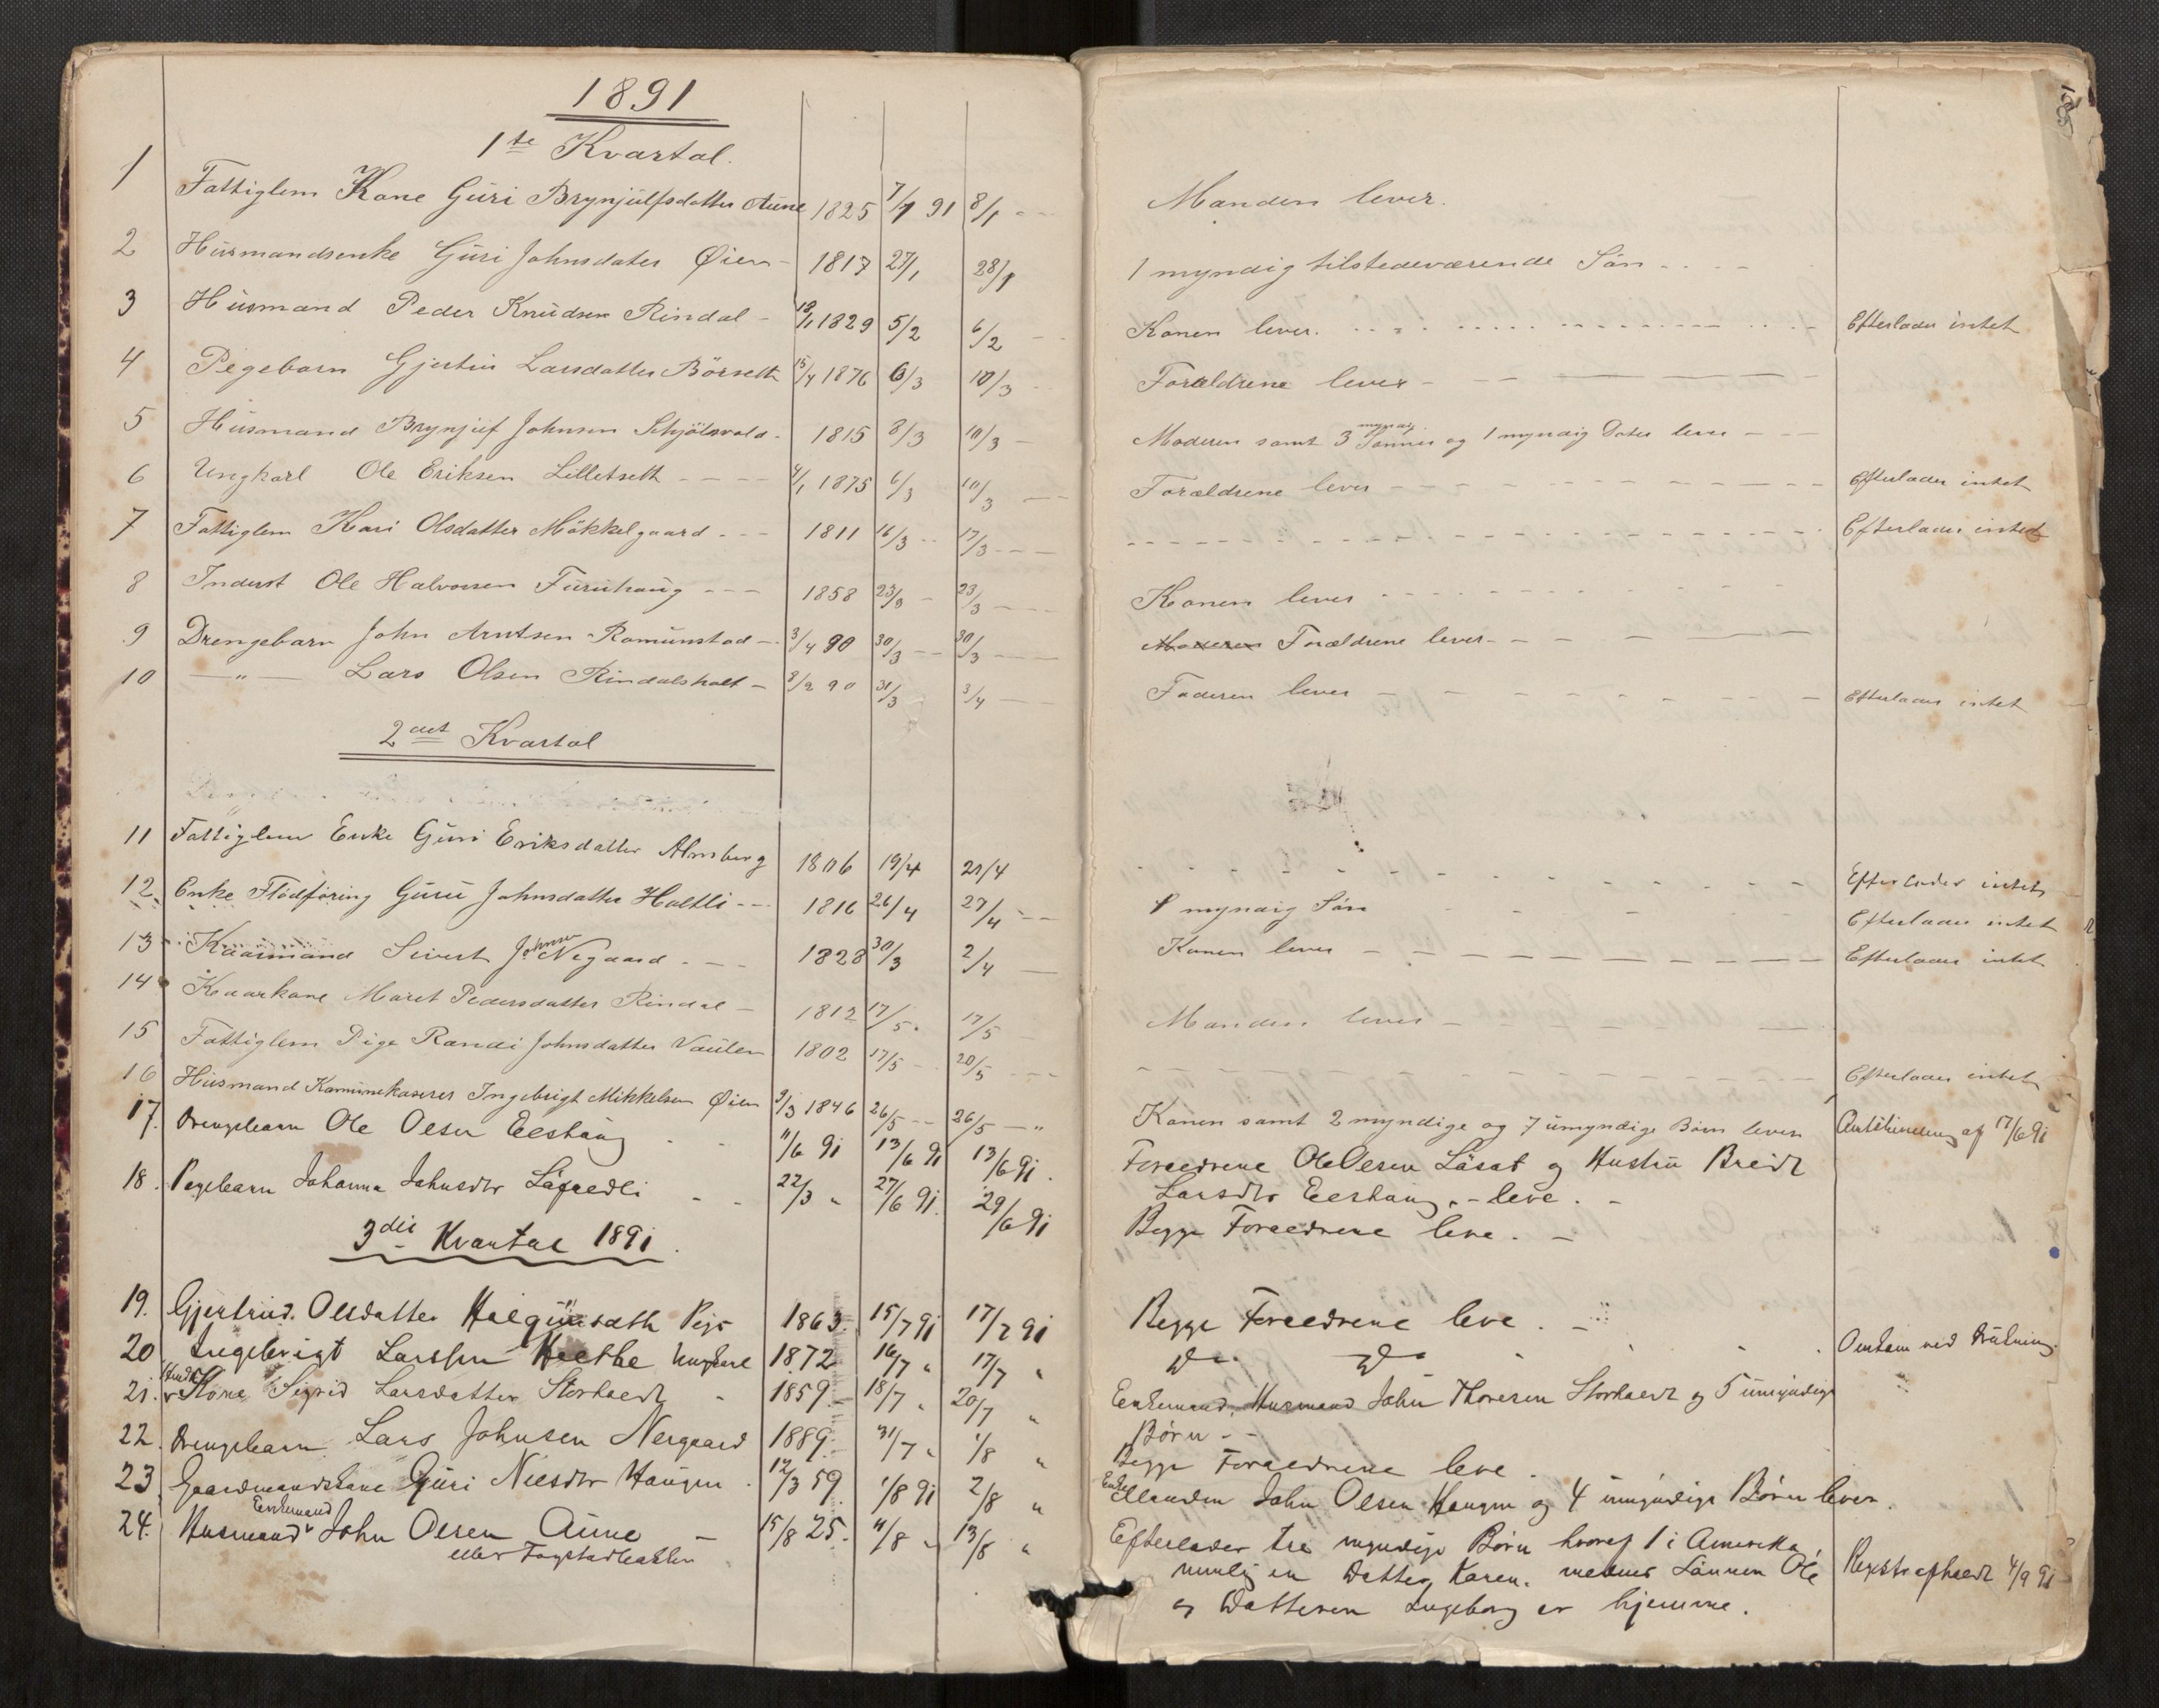 1891
1ste Kvartal.
1 Fattiglem Kone Guri Brynjulfsdatter Aune 1825 7/1 91 8/1 Manden lever.
2 Husmandsenke Guri Johnsdater Øien 1817 27/1 28/1 1 myndig tilstedeværende Sön
3 Husmand Peder Knudsen Rindal 1829 5/2 6/2 Konen lever. Efterlader intet
4 Pigebarn Gjertin Larsdatter Börseth 15/4 1876 6/3 10/3 Forældrene lever
5 Husmand Brynjulf Johnsen Schjölsvold 1815 8/3 10/3 Moderen samt 3 myndig Sönner og 1 myndig Dater lever
6 Ungkarl Ole Eriksen Lilletseth 4/1 1875 6/3 10/3 Forældrene lever Efterlader intet
7 Fattiglem Kari Olsdatter Mökkelgaard 1811 16/3 17/3 Efterlader intet
8 Inderst Ole Halvorsen Furuhaug 1858 23/3 23/3 Konen lever
9 Drengebarn John Arntsen Romunstad 3/4 90 30/3 30/3 Moderen Forældrene lever
10 —"— Lars Olsen Rindalsholt 8/2 90 31/3 3/4 Faderen lever Efterlader intet
2det Kvartal
11 Fattiglem Enke Guri Eriksdatter Almberg 1806 19/4 21/4 Efterlader intet
12 Enke Flödföring Guru Johnsdatter Holtli 1816 26/4 27/4 1 myndig Sön Efterlader intet
13 Kaarmand Sivert Johnsen Negaard 1828 30/3 2/4 Konen lever Efterlader intet
14 Kaarkone Marit Pedersdatter Rindal 1812 17/5 17/5 Manden lever
15 Fattiglem Pige Randi Johnsdatter Vaulen 1802 17/5 20/5 Efterlader intet
16 Husmand Komunekaserer Ingebrigt Mikkelsen Øien 9/3 1846 26/5 26/5 Konen samt 2 myndige og 7 umyndige Börn lever af 17/6 91
17. Drengebarn Ole Olsen Elshaug 11/6 91 13/6 91 13/6 91. Forældrene Ole Olsen Låsat og Hustru Breidt
Larsdtr Elshaug. – leve. –
18. Pigebarn Johanna Johnsdtr 22/3 " 27/6 91. 29/6 91 Begge Forældrene leve. –
3die Kvartal 1891.
19. Gjertrud. Olsdatter Helgumsæth Pige 1863. 15/7 91 17/7 91 Begge Forældrene leve. –
20 Ingebrigt Larssen Heltbe Ungkarl 1872 16/7 " 17/7 " Do Do Omkom ved Drukning.
21. Kone Sigrid Larsdatter Storholdt 1859 18/7 " 20/7 " Enkemand, Husmand John Thoresen Storholdt og 5 umyndige
Børn –
22. Drengebarn Lars Johnsen Nergaard 1889. 31/7 " 1/8 " Begge Forældrene leve.
23 Gaardmandskone Guri Nilsdtr Haugen 12/3 59. 1/8 91 2/8 " Enkemanden John Olsen Haugen og 4 umyndige Børn lever.
24. Husmand Enkemand John Olsen Aune 15/8 25. 11/8 " 13/8 " Efterlader tre myndige Børn hvoraf 1 i Amerika,
eller Fagstadbakken nemlig en Datter Karen. medens Sønnen Ole 4/9 91
og Datteren Ingeborg er hjemme.